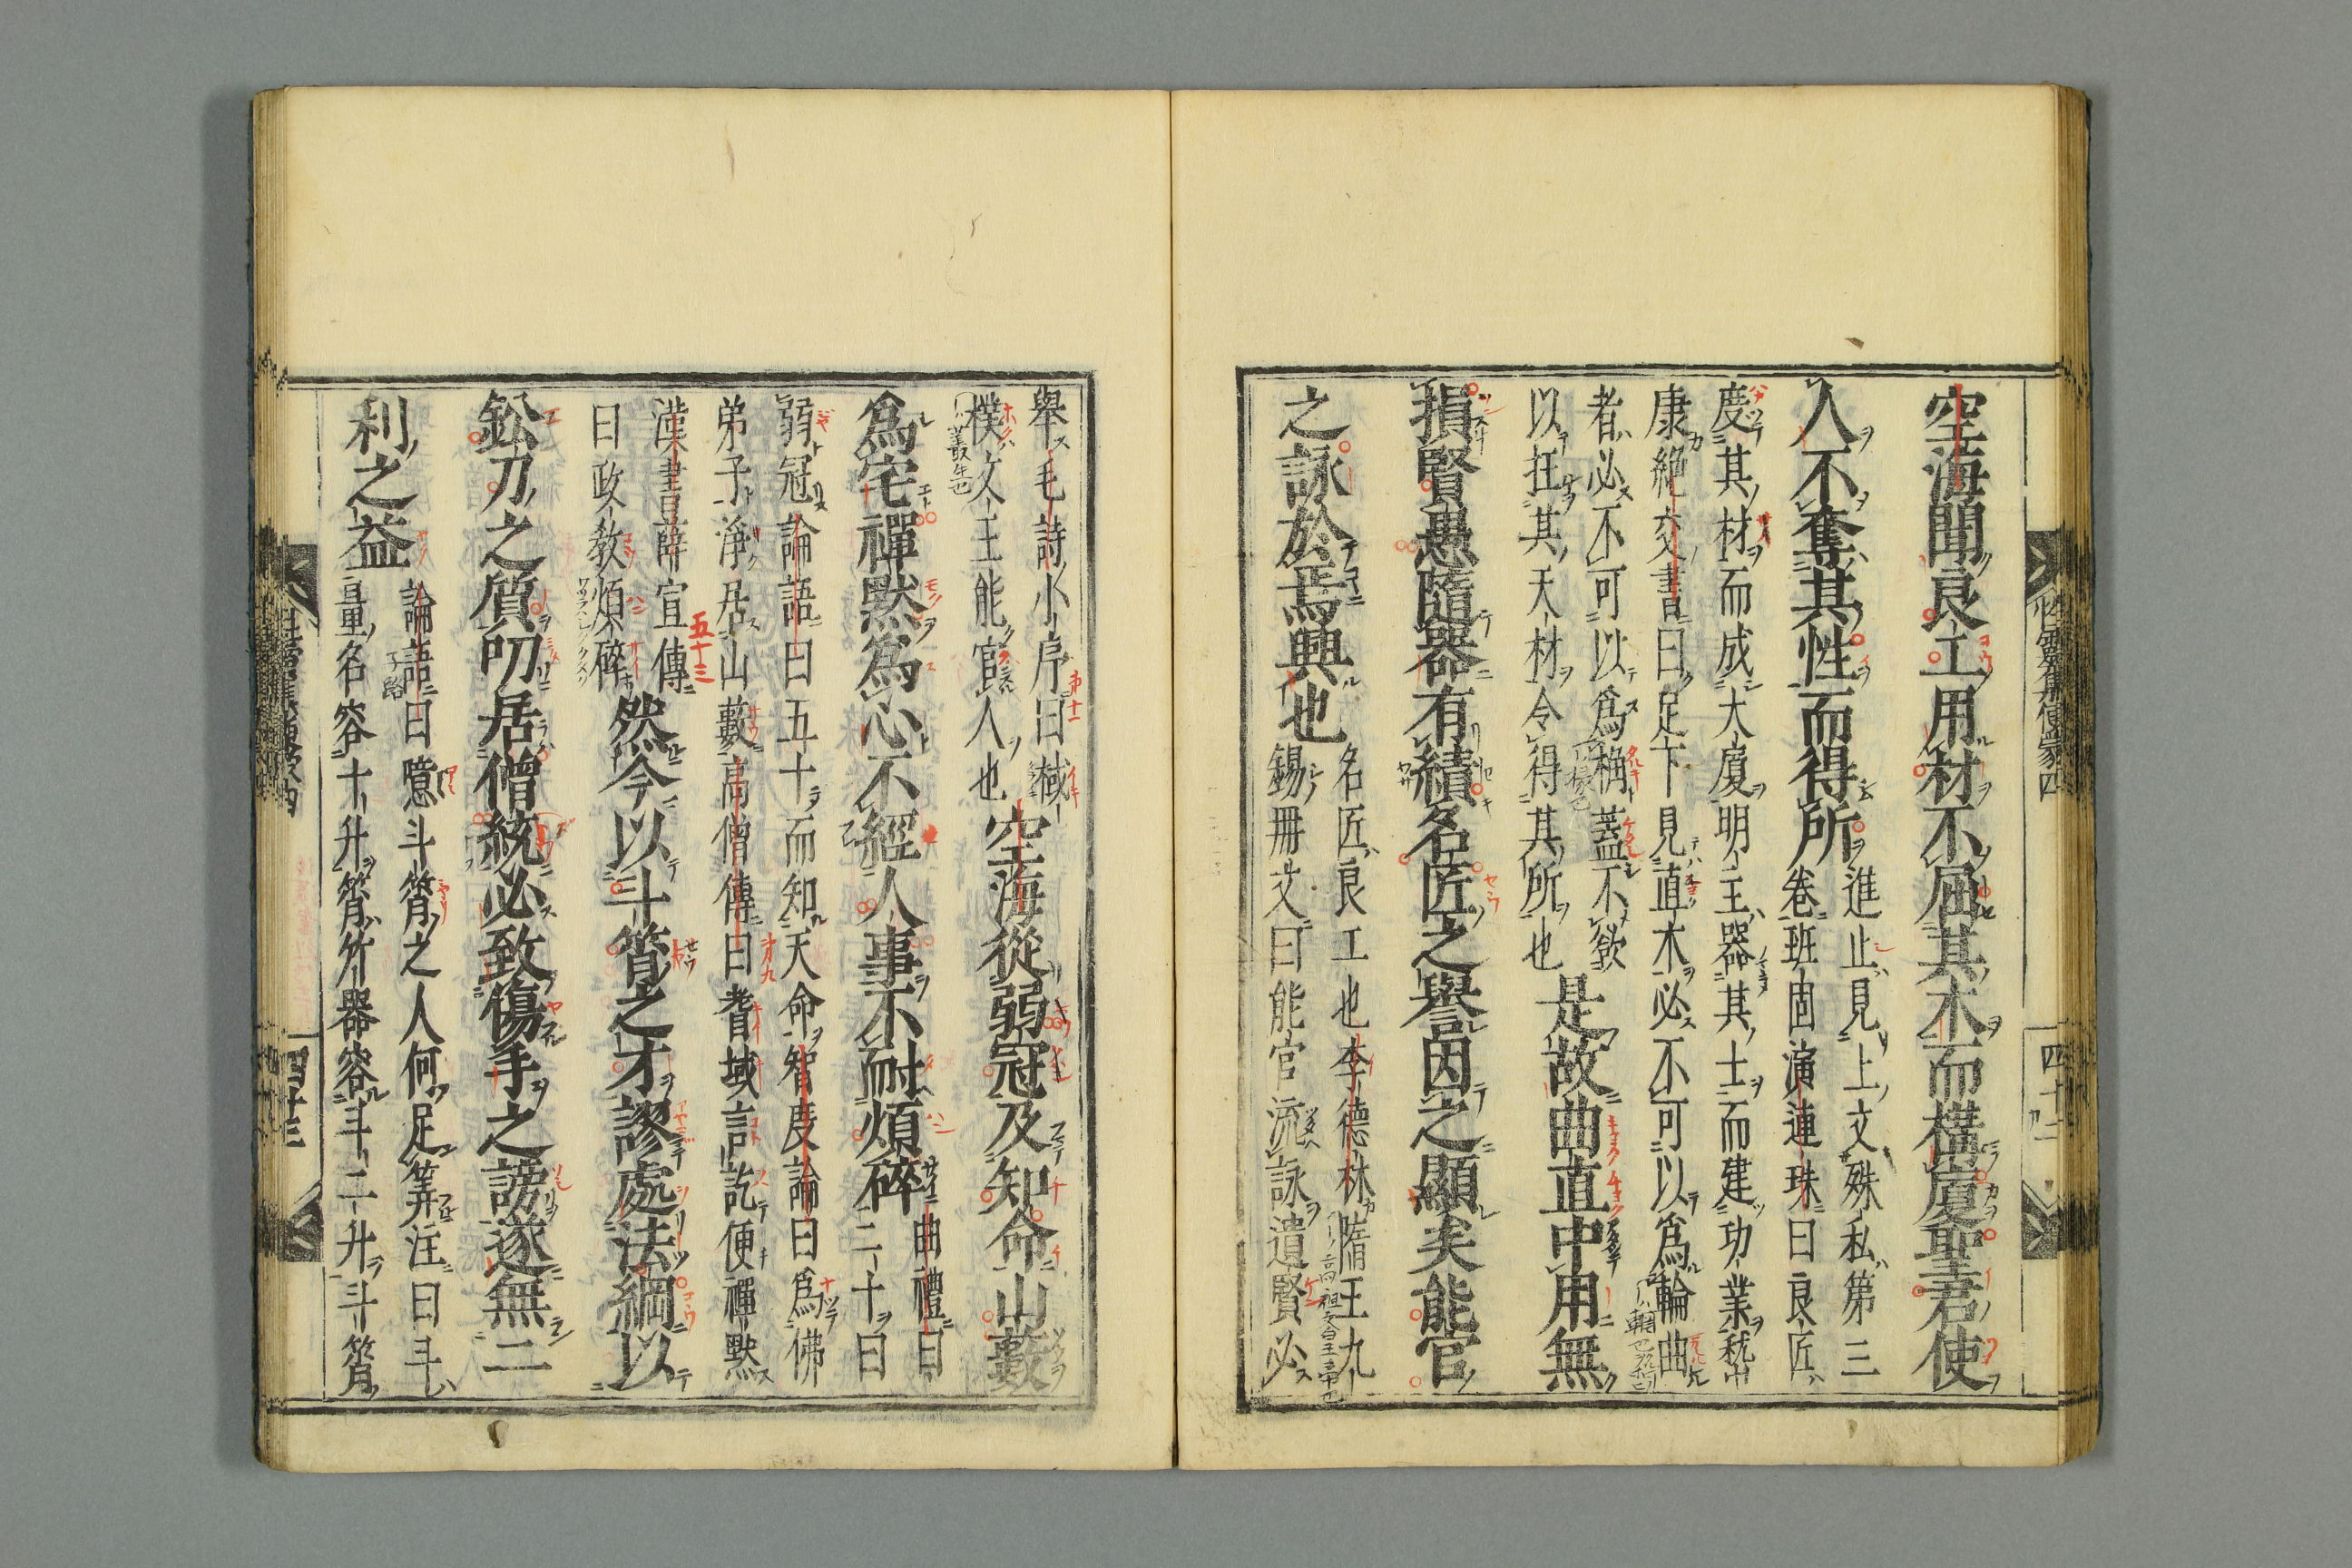 空海聞良工用材不屈其木而構廈聖君使
人不奪其性而得所
進止見上文殊私第三
卷班固演連珠曰良匠
度其材而成大廈明主器其士而建功業嵆中
康絕交書曰足下見直木必不可以爲輪曲
者必不可以爲桷蓋不欲
以抂其天材令得其所也
是故曲直中用無
損賢愚隨器有績名匠之譽因之顯矣能官
之詠於焉興也
名匠良工也李德林隋王九
錫冊文曰能官流詠遺賢必
舉毛詩小序曰棫
樸文王能官人也
空海從弱冠及知命山藪
爲宅禪默爲心不經人事不耐煩碎
曲禮曰
二十曰
弱冠論語曰五十而知天命智度論曰爲佛
弟子淨居山藪高僧傳曰耆域言訖便禪默
漢書薛宣傳
曰政教煩碎
然今以斗筲之才謬處法綱以
鈆刀之質叨居僧統必致傷手之謗遂無二
利之益
論語曰噫斗筲之人何足筭注曰斗
量名容十升筲竹器容斗二升斗筲
五十三
性靈集便蒙四
四十二
四十三